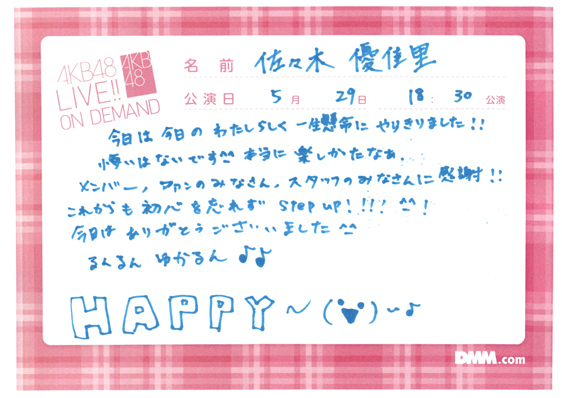 AKB48
LIVE!!
ON DEMAND
AKB
48
名前 佐々木 優佳里
公演日 5月 29日 18:30公演
今日は今日のわたしらしく一生懸命にやりきりました!!
悔いはないです^^ 本当に楽しかたなぁ.
メンバー, ファンのみなさん, スタッフのみなさんに感謝!!
これからも初心を忘れず step up!!!! ^^!
今日はありがとうございました^^
るんるん ゆかるん♪♪
HAPPY~(・▼・)~♪
DMM.com